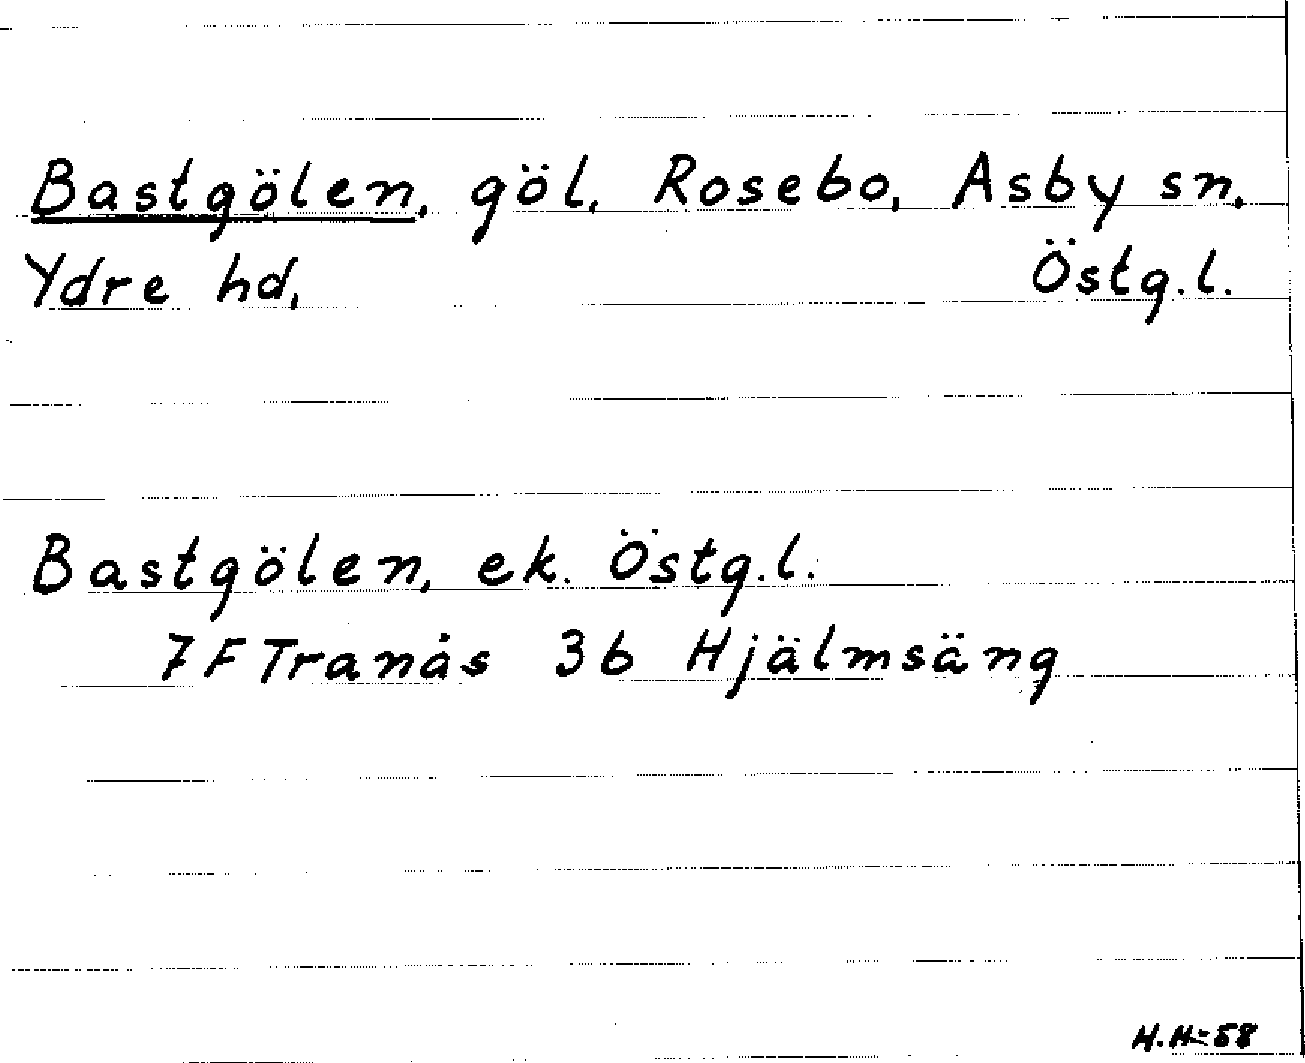 Bastgölen, göl, Rosebo, Asby sn,
Ydre hd, Östg.l.
Bastgölen, ek. Östg.l.
7F Tranås 3b Hjälmsäng
H.H-58